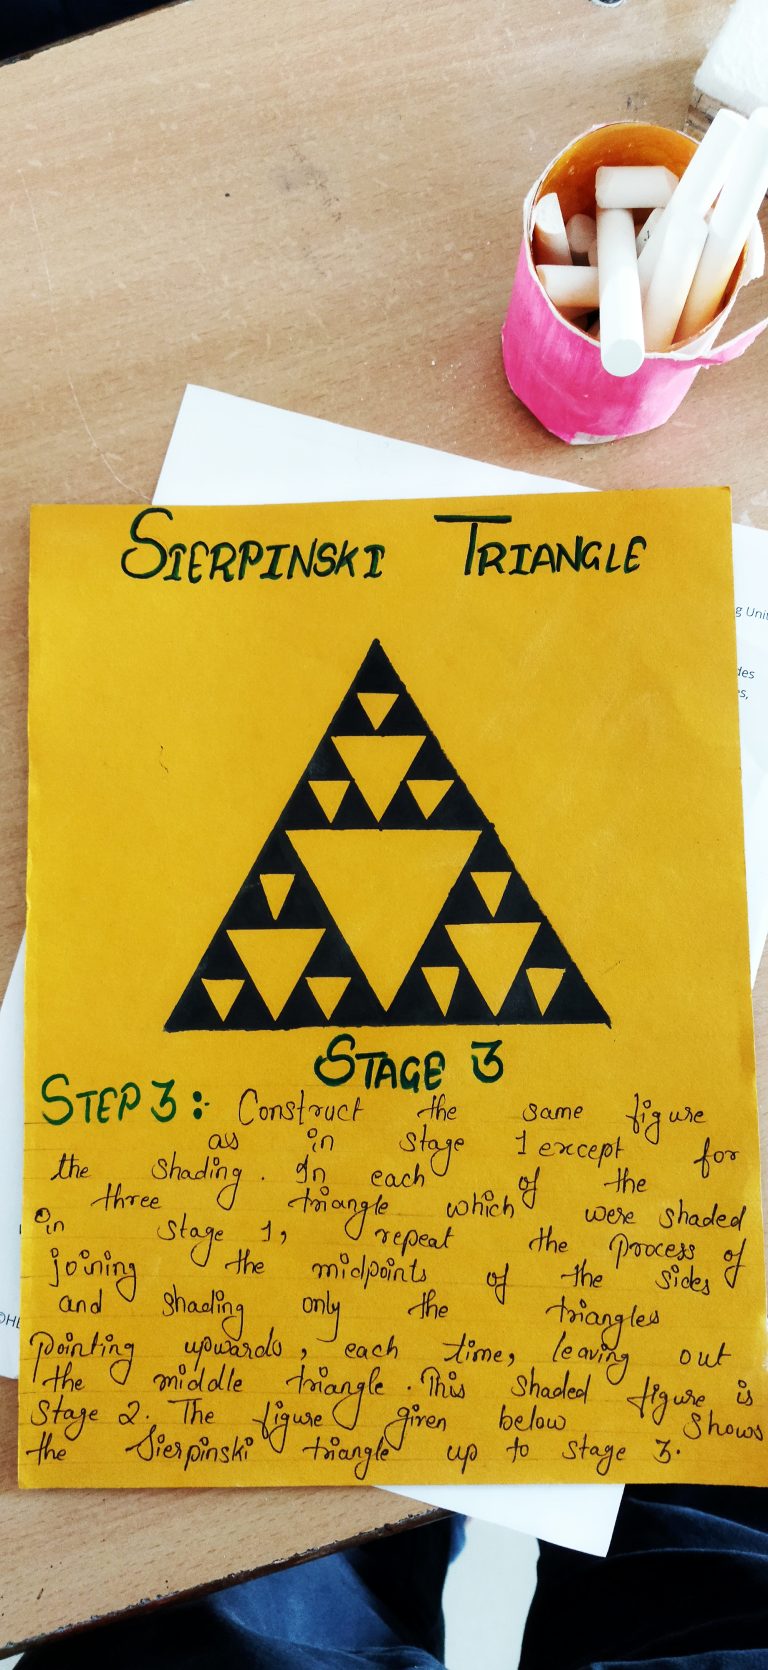 SIERPINSKI TRIANGLE
STAGE 3
STEP 3:- Construct the same figure
as in stage 1 except for
the shading. In each of the
three triangle which were shaded
in stage 1, repeat the process of
joining the midpoints of the sides
and shading only the triangles
pointing upwards, each time, leaving out
the middle triangle. This shaded figure is
Stage 2. The figure given below shows
the Sierpinski triangle up to stage 3.